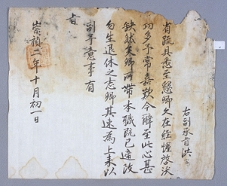 右副承旨洪
省疏具悉至懇卿久在經幄啓沃
功多予常嘉歎今辭至此心甚
缺然矣卿所帶本職既已遞改
勿生退休之志卿其速爲上來以
副予意事有
旨
崇禎二年十月初一日